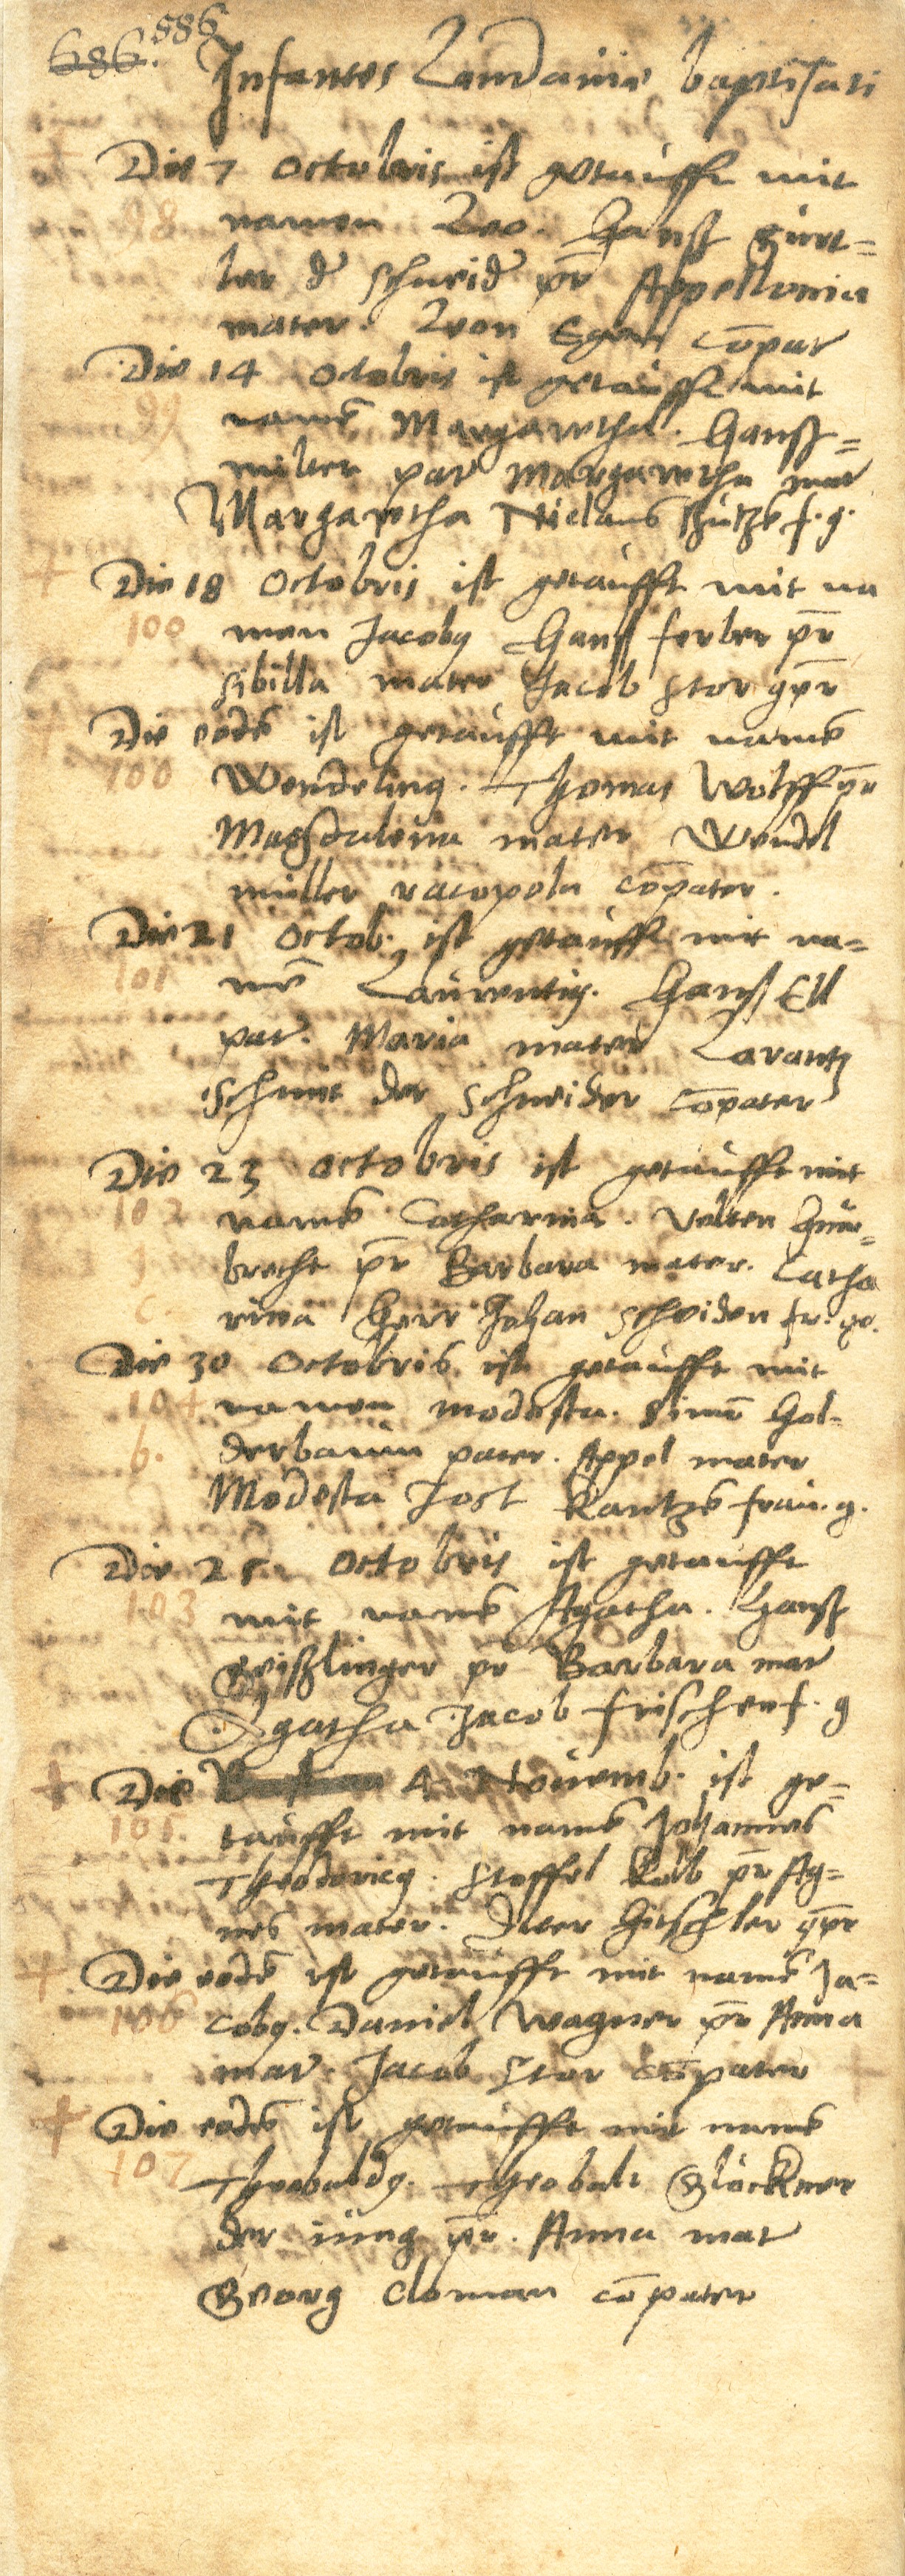 686. 586
Infantes Landauiae baptisati
Die 7 Octobris ist getaufft mit
98 namen Leo. Hanß Gürt=
ler d̄ schneid̄ pr̄ Appellonia
mater. Leon Egen cōpat
Die 14 Octobris ist getaufft mit
99 namē Margaretha. Hanß=
miller pat Margaretha mat
Margaretha Niclaus f. g.
Die 18 Octobris ist getaufft mit na
100 men Jacobꝯ Hanß ferber pr̄
Sibilla mater Jacob Stor gpr̄
Die eodē ist getaufft mit namē
100 Wendelinꝯ. Thomas Wolff pr̄
Magdalena mater Wendel
müller cōpater.
Die 21 Octob. ist getaufft mit na=
101 mē Laurentiꝯ. Hanß Ell
pat. Maria mater Larantz
Schmit der schneider cōpater
Die 23 octobris ist getaufft mit
102 namē Catharina. Velten
brecht pr̄ Barbara mater. Catha
rina Herr Johan Scheiden fr. ge.
Die 30 Octobris ist getaufft mit
104 namen modesta. Simō Hol=
b. derbaum pater. Appel mater
Modesta Jost Kantzē frau. g.
Die 25 Octobris ist getaufft
103 mit namē Agatha. Hanß
Geißlinger pr Barbara mat
Agatha Jacob frischen f. g
Die 4 Nouemb. ist ge=
105. taufft mit namē Johannes
Theodoricꝯ. Stoffel Kolb pr̄ Ag=
nes mater. Diter Hitschler gpr̄
Die eodē ist getaufft mit namē Ja=
106 cobꝯ. Daniel Wagner pr̄ Anna
mat. Jacob Stor cōpater
Die eodē ist getaufft mit namē
107 Theobaldꝯ. Theobalt Glöckner
der iung pr̄. Anna mat
Georg Cloman cōpater